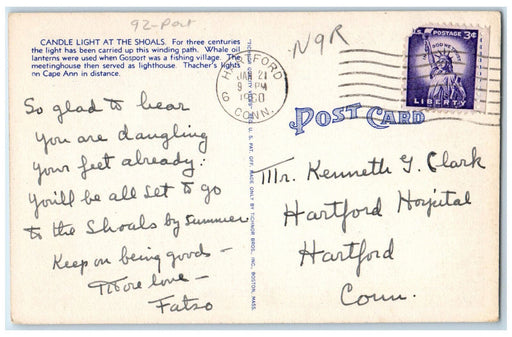 92-Port
N9R
CANDLE LIGHT AT THE SHOALS. For three centuries
the light has been carried up this winding path. Whale oil
lanterns were used when Gosport was a fishing village. The
meetinghouse then served as lighthouse. Thacher's lights
on Cape Ann in distance.
HARTFORD
JAN 21
9 PM
1960
6 CONN.
U.S. POSTAGE 3¢
IN GOD WE TRUST
LIBERTY
POST CARD
So glad to hear
you are dangling
your feet already:
You'll be all set to go
to the Shoals by summer
Keep on being good—
More love—
Fatso
Mr. Kenneth G. Clark
Hartford Hospital
Hartford
Conn.
PAT. OFF. MADE ONLY BY TICHNOR BROS., INC., BOSTON, MASS.